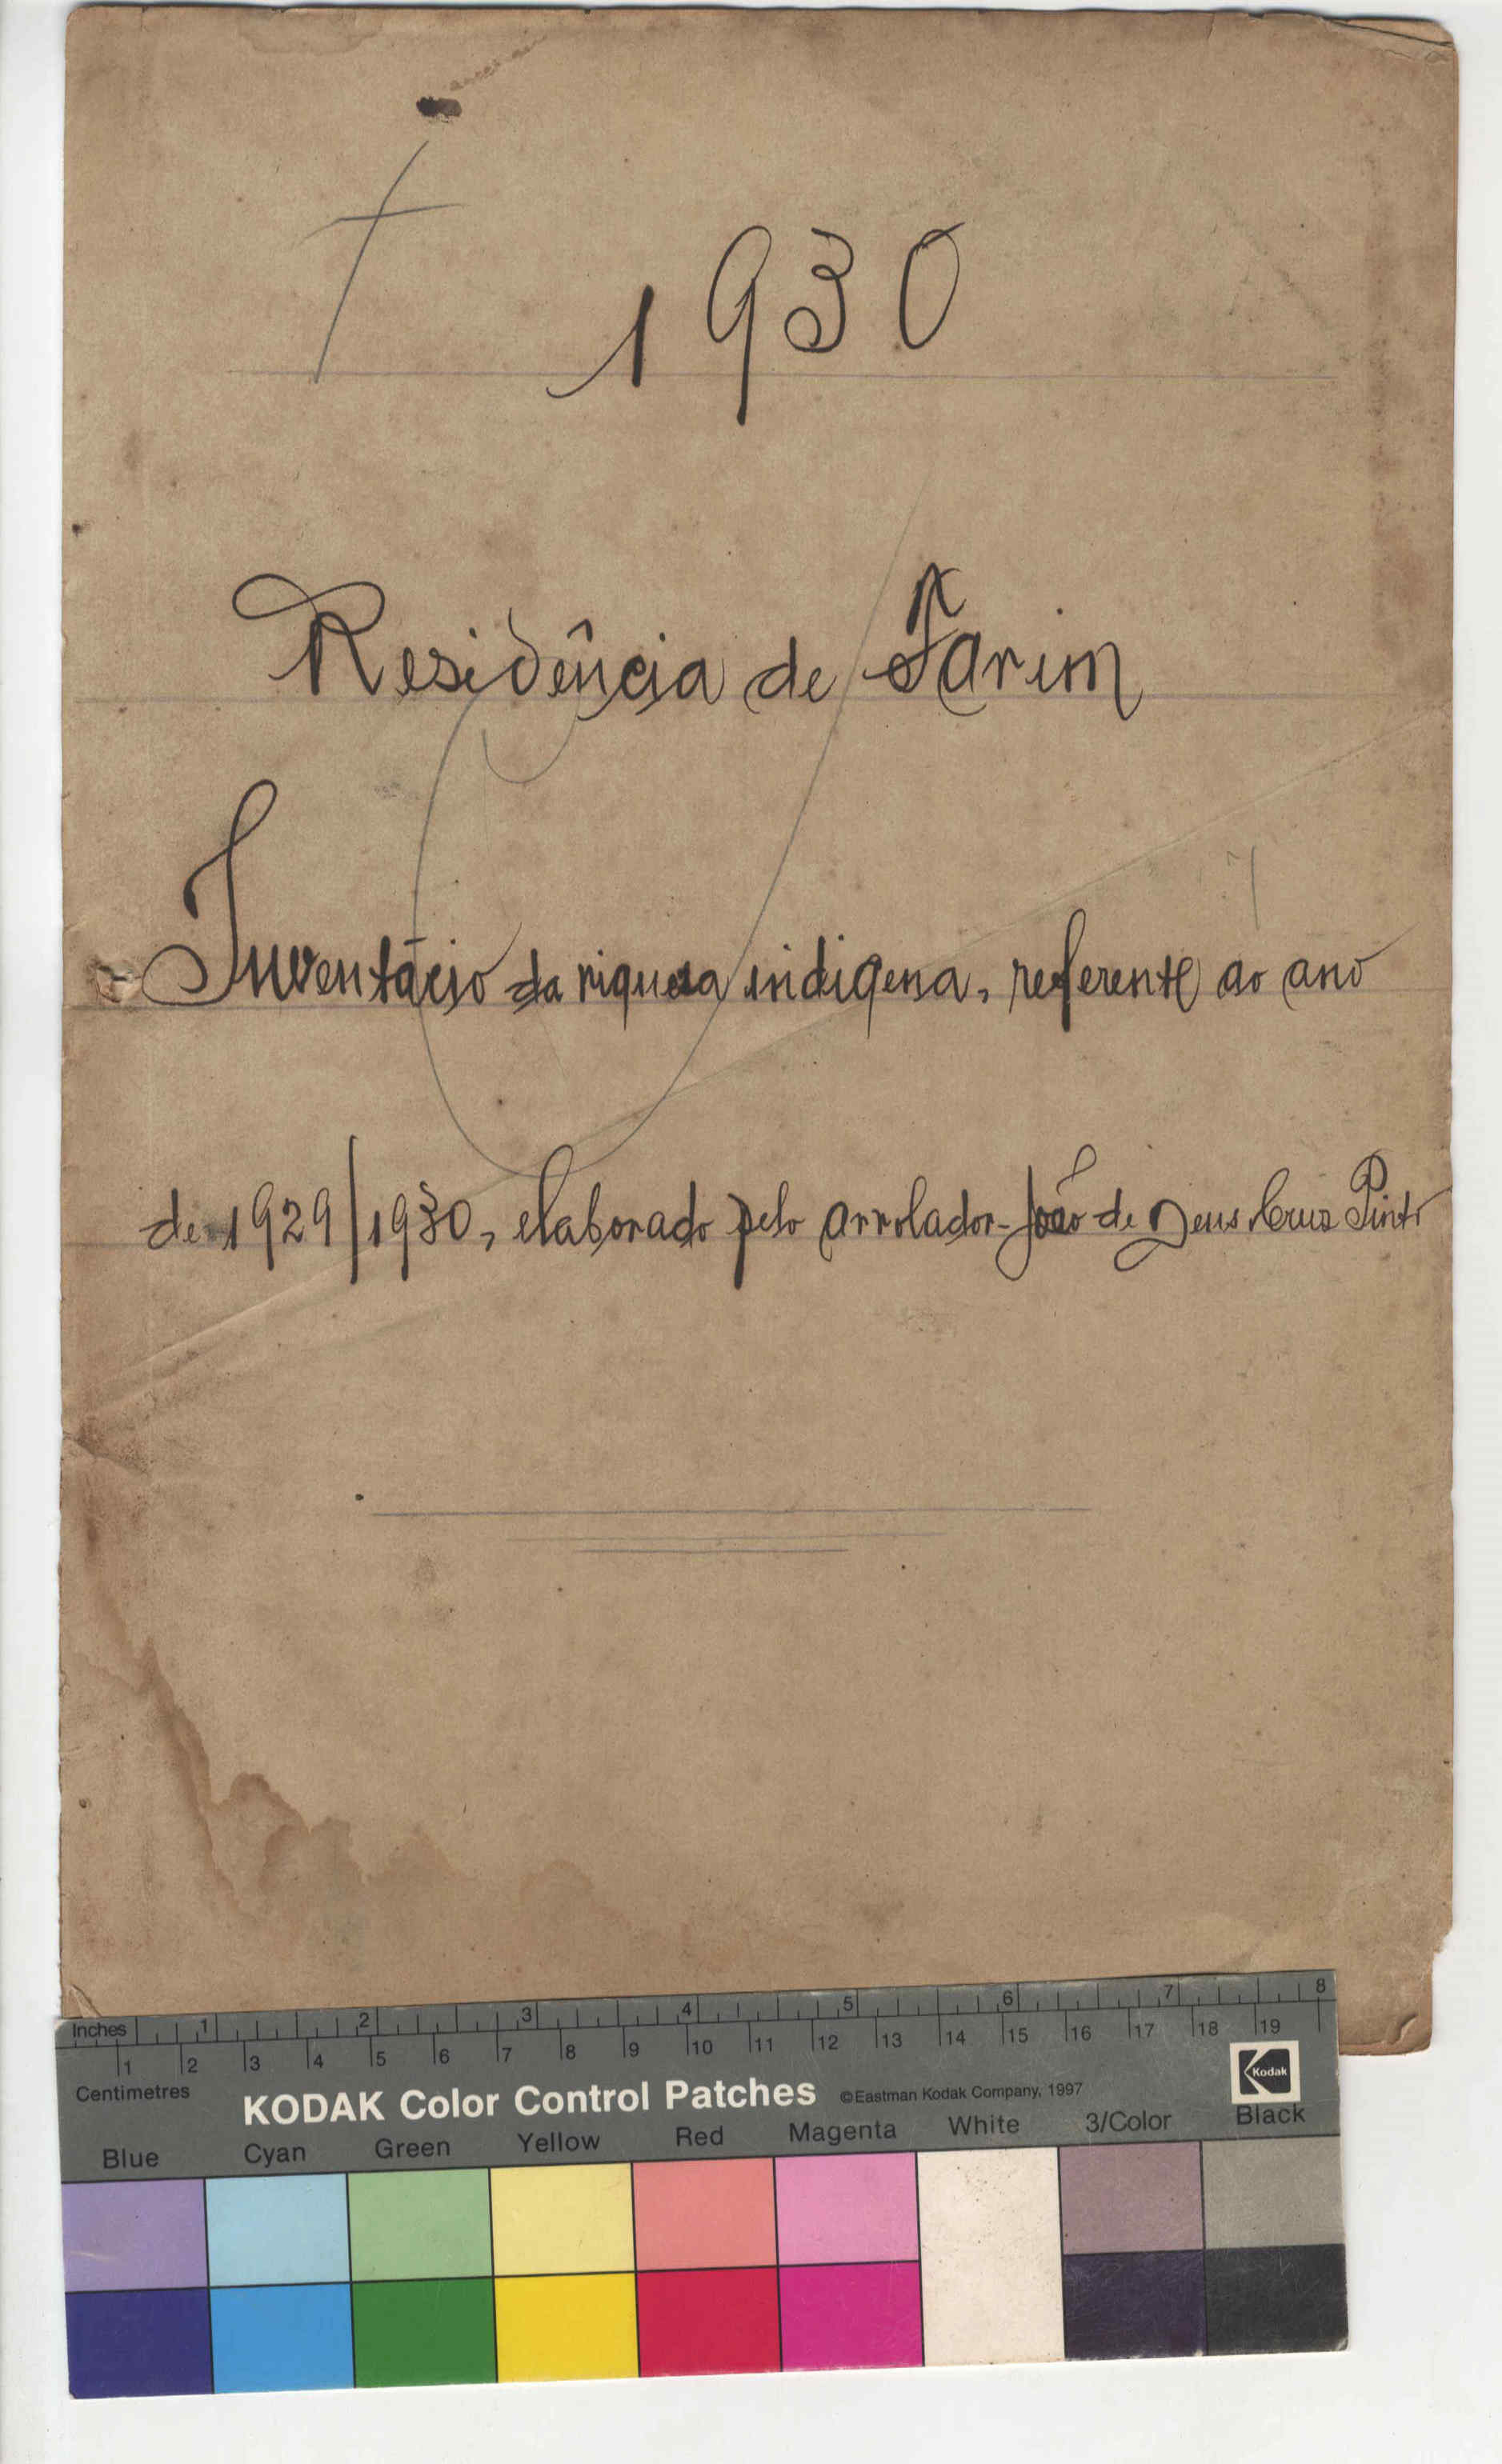 1930
Residência de Farim
Inventário da riquesa indigena, referente ao ano
de 1929/1930, elaborado pelo arrolador-João de Deus Cruz Pinto
Inches 1 2 3 4 5 6 7 8
1 2 3 4 5 6 7 8 9 10 11 12 13 14 15 16 17 18 19
Centimetres
KODAK Color Control Patches ©Eastman Kodak Company, 1997 Kodak
Blue Cyan Green Yellow Red Magenta White 3/Color Black